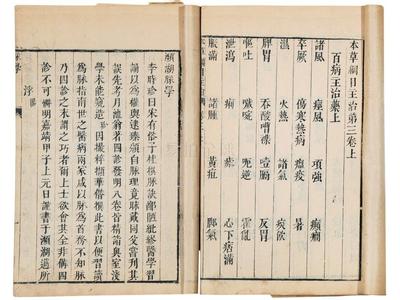 本草綱目主治第三卷上
百病主治藥上
諸風 痙風 項強 癲癇
卒厥 傷寒熱病 瘟疫 暑
濕 火熱 諸氣 痰飲
脾胃 吞酸嘈雜 噎膈 反胃
嘔吐 噦啘 呃逆 霍亂
泄瀉 痢 瘧 心下痞滿
脹滿 諸腫 黃疸 腳氣
瀕湖脉學
李時珍曰宋有俗子杜撰脉訣鄙陋紕繆醫學習
誦以為權輿逮臻頒白脉理竟昧戴同父常刊其
誤先考月池翁著四診發明八卷皆精詣奧室淺
學未能窺造珍因撮粹擷華僭撰此書以便習讀
為脉指南世之醫病兩家咸以脉為首務不知脉
乃四診之末謂之巧者爾上士欲會其全非備四
診不可旹嘉靖甲子上元日謹書于瀕湖邁所
浮